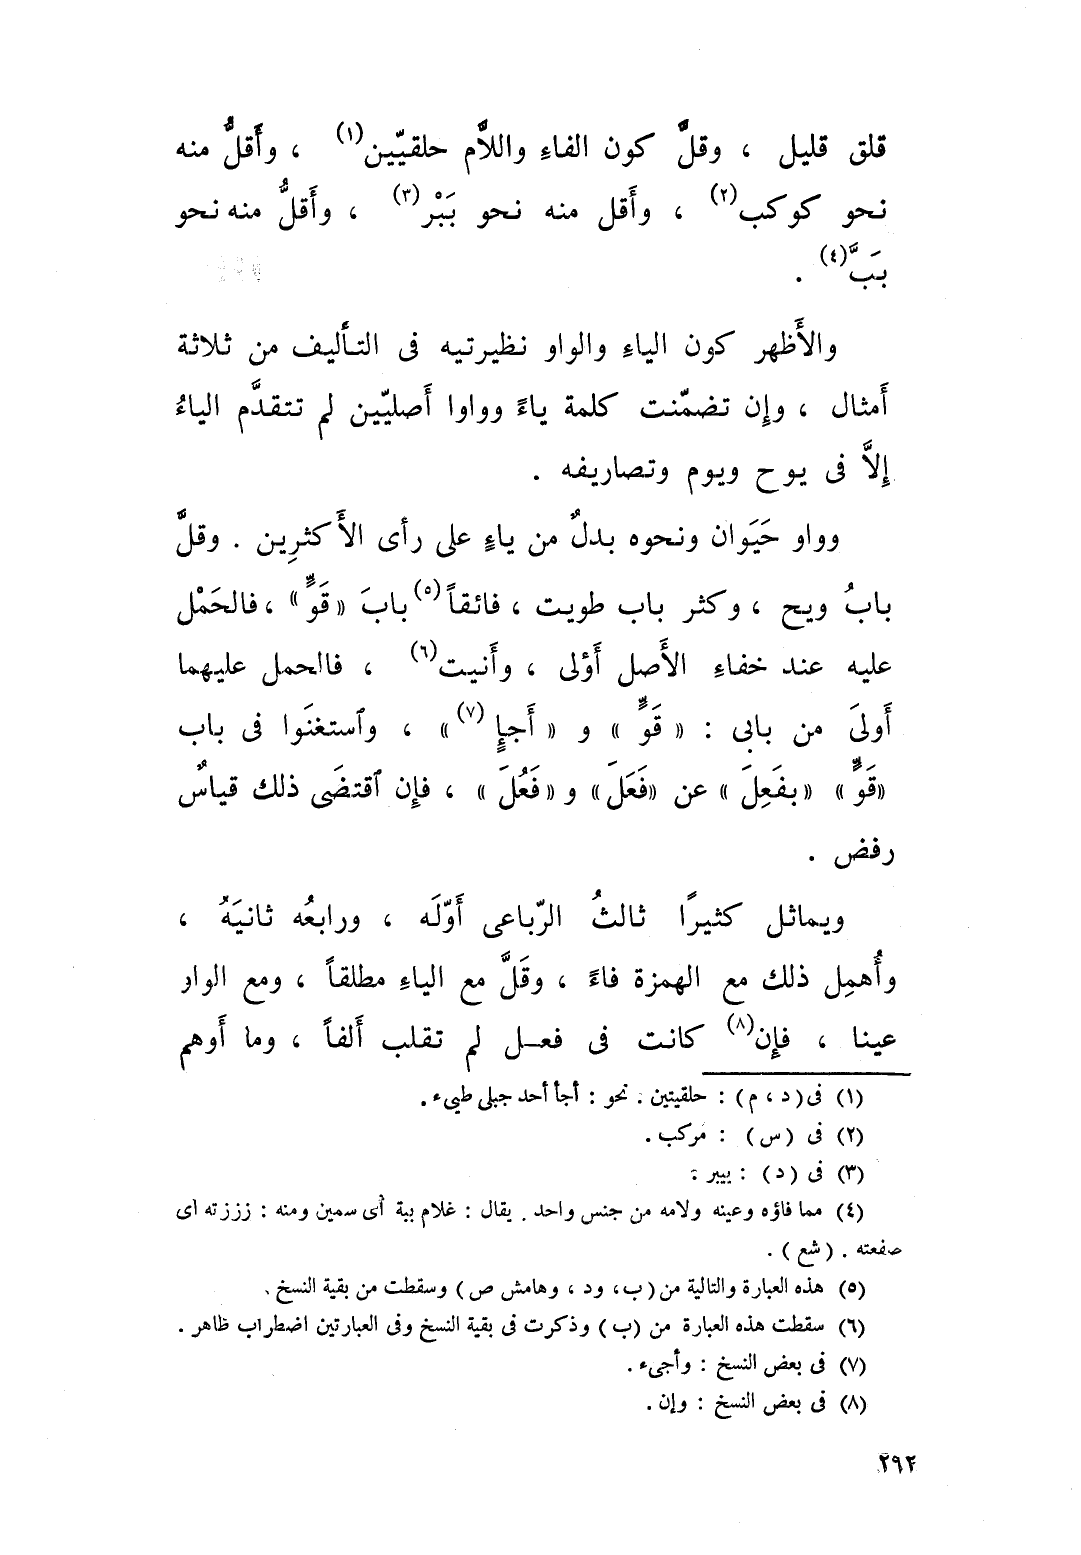 قلق قليل ، وقلَّ كون الفاءِ واللاَّم حلقيّين(١) ، وأَقلُّ منه
نحو كوكب(٢) ، وأَقل منه نحو بَبْر(٣) ، وأَقلُّ منه نحو
بَبَّ(٤) .
والأَظهر كون الياءِ والواو نظيرتيه فى التأليف من ثلاثة
أَمثال ، وإِن تضمّنت كلمة ياءً وواوا أَصليّين لم تتقدَّم الياءُ
إِلاَّ فى يوح ويوم وتصاريفه .
وواو حَيَوان ونحوه بدلٌ من ياءٍ على رأى الأَكثرِين . وقلَّ
بابُ ويح ، وكثر باب طويت ، فائقاً(٥) بابَ «قَوٍّ» ، فالحَمْل
عليه عند خفاءِ الأَصل أَوْلى ، وأَنيت(٦) ، فالحمل عليهما
أَولىَ من بابى : « قَوٍّ » و « أَجإٍ(٧) » ، وٱستغنَوا فى باب
«قَوٍّ» «بفَعِلَ» عن «فَعَلَ» و «فَعُلَ» ، فإِن ٱقتضَى ذلك قياسٌ
رفض .
ويماثل كثيرًا ثالثُ الرّباعى أَوّلَه ، ورابعُه ثانيَهُ ،
وأُهمِل ذلك مع الهمزة فاءً ، وقَلَّ مع الياءِ مطلقاً ، ومع الواو
عينا ، فإِن(٨) كانت فى فعـل لم تقلب أَلفاً ، وما أَوهم
(١) فى (د ، م) : حلقيتين . نحو : أجأ أحد جبلى طيىء .
(٢) فى (س) : مركب .
(٣) فى (د) : ييبر .
(٤) مما فاؤه وعينه ولامه من جنس واحد . يقال : غلام ببة أى سمين ومنه : زززته اى
صفعته . (شع) .
(٥) هذه العبارة والتالية من (ب، ود ، وهامش ص) وسقطت من بقية النسخ .
(٦) سقطت هذه العبارة من (ب) وذكرت فى بقية النسخ وفى العبارتين اضطراب ظاهر .
(٧) فى بعض النسخ : وأجىء .
(٨) فى بعض النسخ : وإن .
٢٩٢